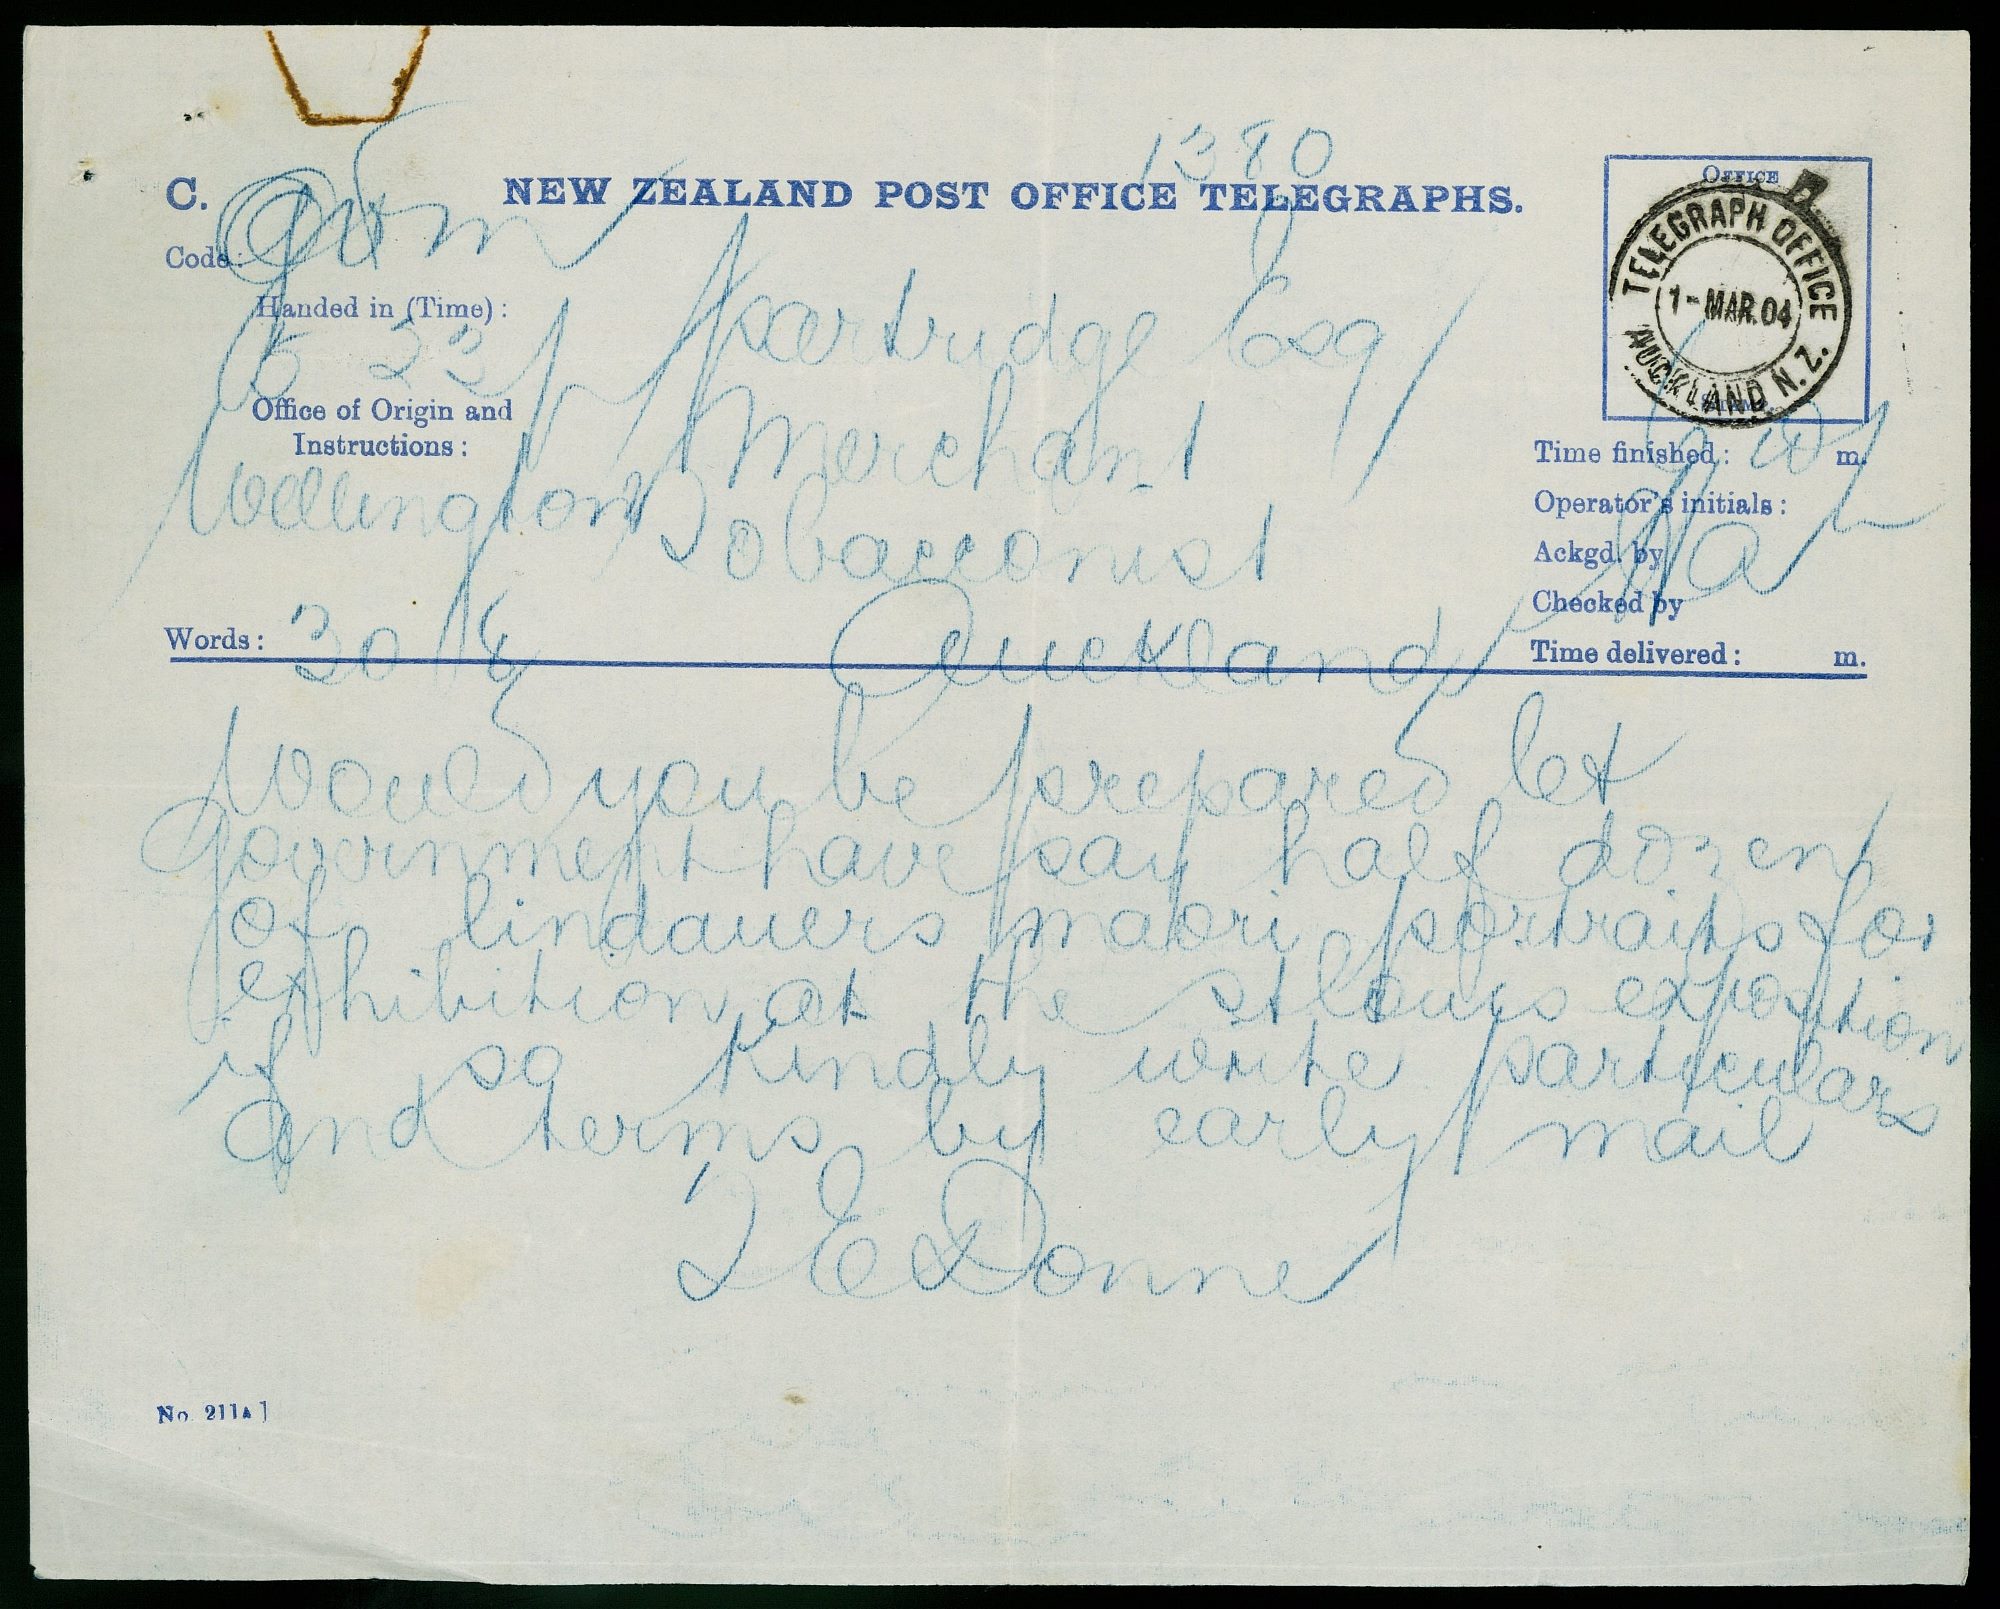 1380
C. NEW ZEALAND POST OFFICE TELEGRAPHS.
OFFICE
TELEGRAPH OFFICE
1-MAR.04
AUCKLAND N.Z.
Code:
Handed in (Time):
5 23
Partridge Esq
Office of Origin and
Instructions:
Merchant
Wellington
Tobacconist
Time finished: m.
Operator's initials:
Ackgd. by
Checked by
Words: 30
Auckland
Time delivered: m.
Would you be prepared let
Government have say half dozen
of lindauers maori portraits for
exhibition at the st louis exposition
if so kindly write particulars
and terms by early mail
T E Donne
No. 211A]